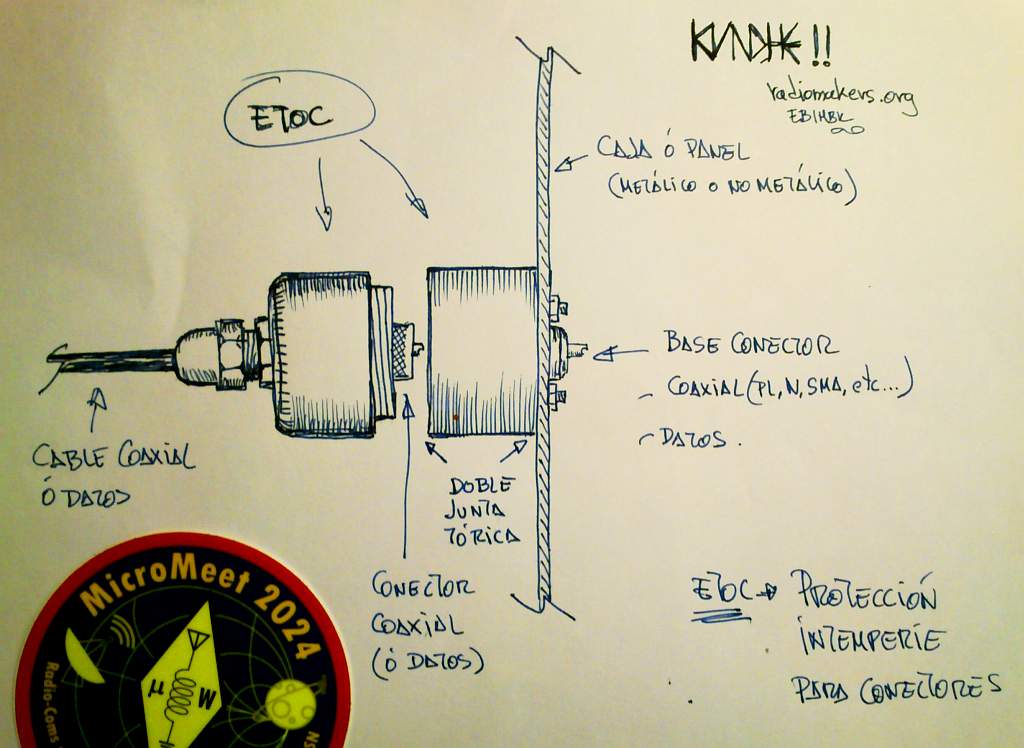 KUNDHE!!
radiomakers.org
EB1HBK
ETOC
CAJA Ó PANEL
(METÁLICO O NO METÁLICO)
BASE CONECTOR
- COAXIAL (PL, N, SMA, etc...)
- DATOS.
CABLE COAXIAL
Ó DATOS
DOBLE
JUNTA
TÓRICA
CONECTOR
COAXIAL
(Ó DATOS)
ETOC → PROTECCIÓN
INTEMPERIE
PARA CONECTORES
MicroMeet 2024
Radio-Coms
NS
µ
W